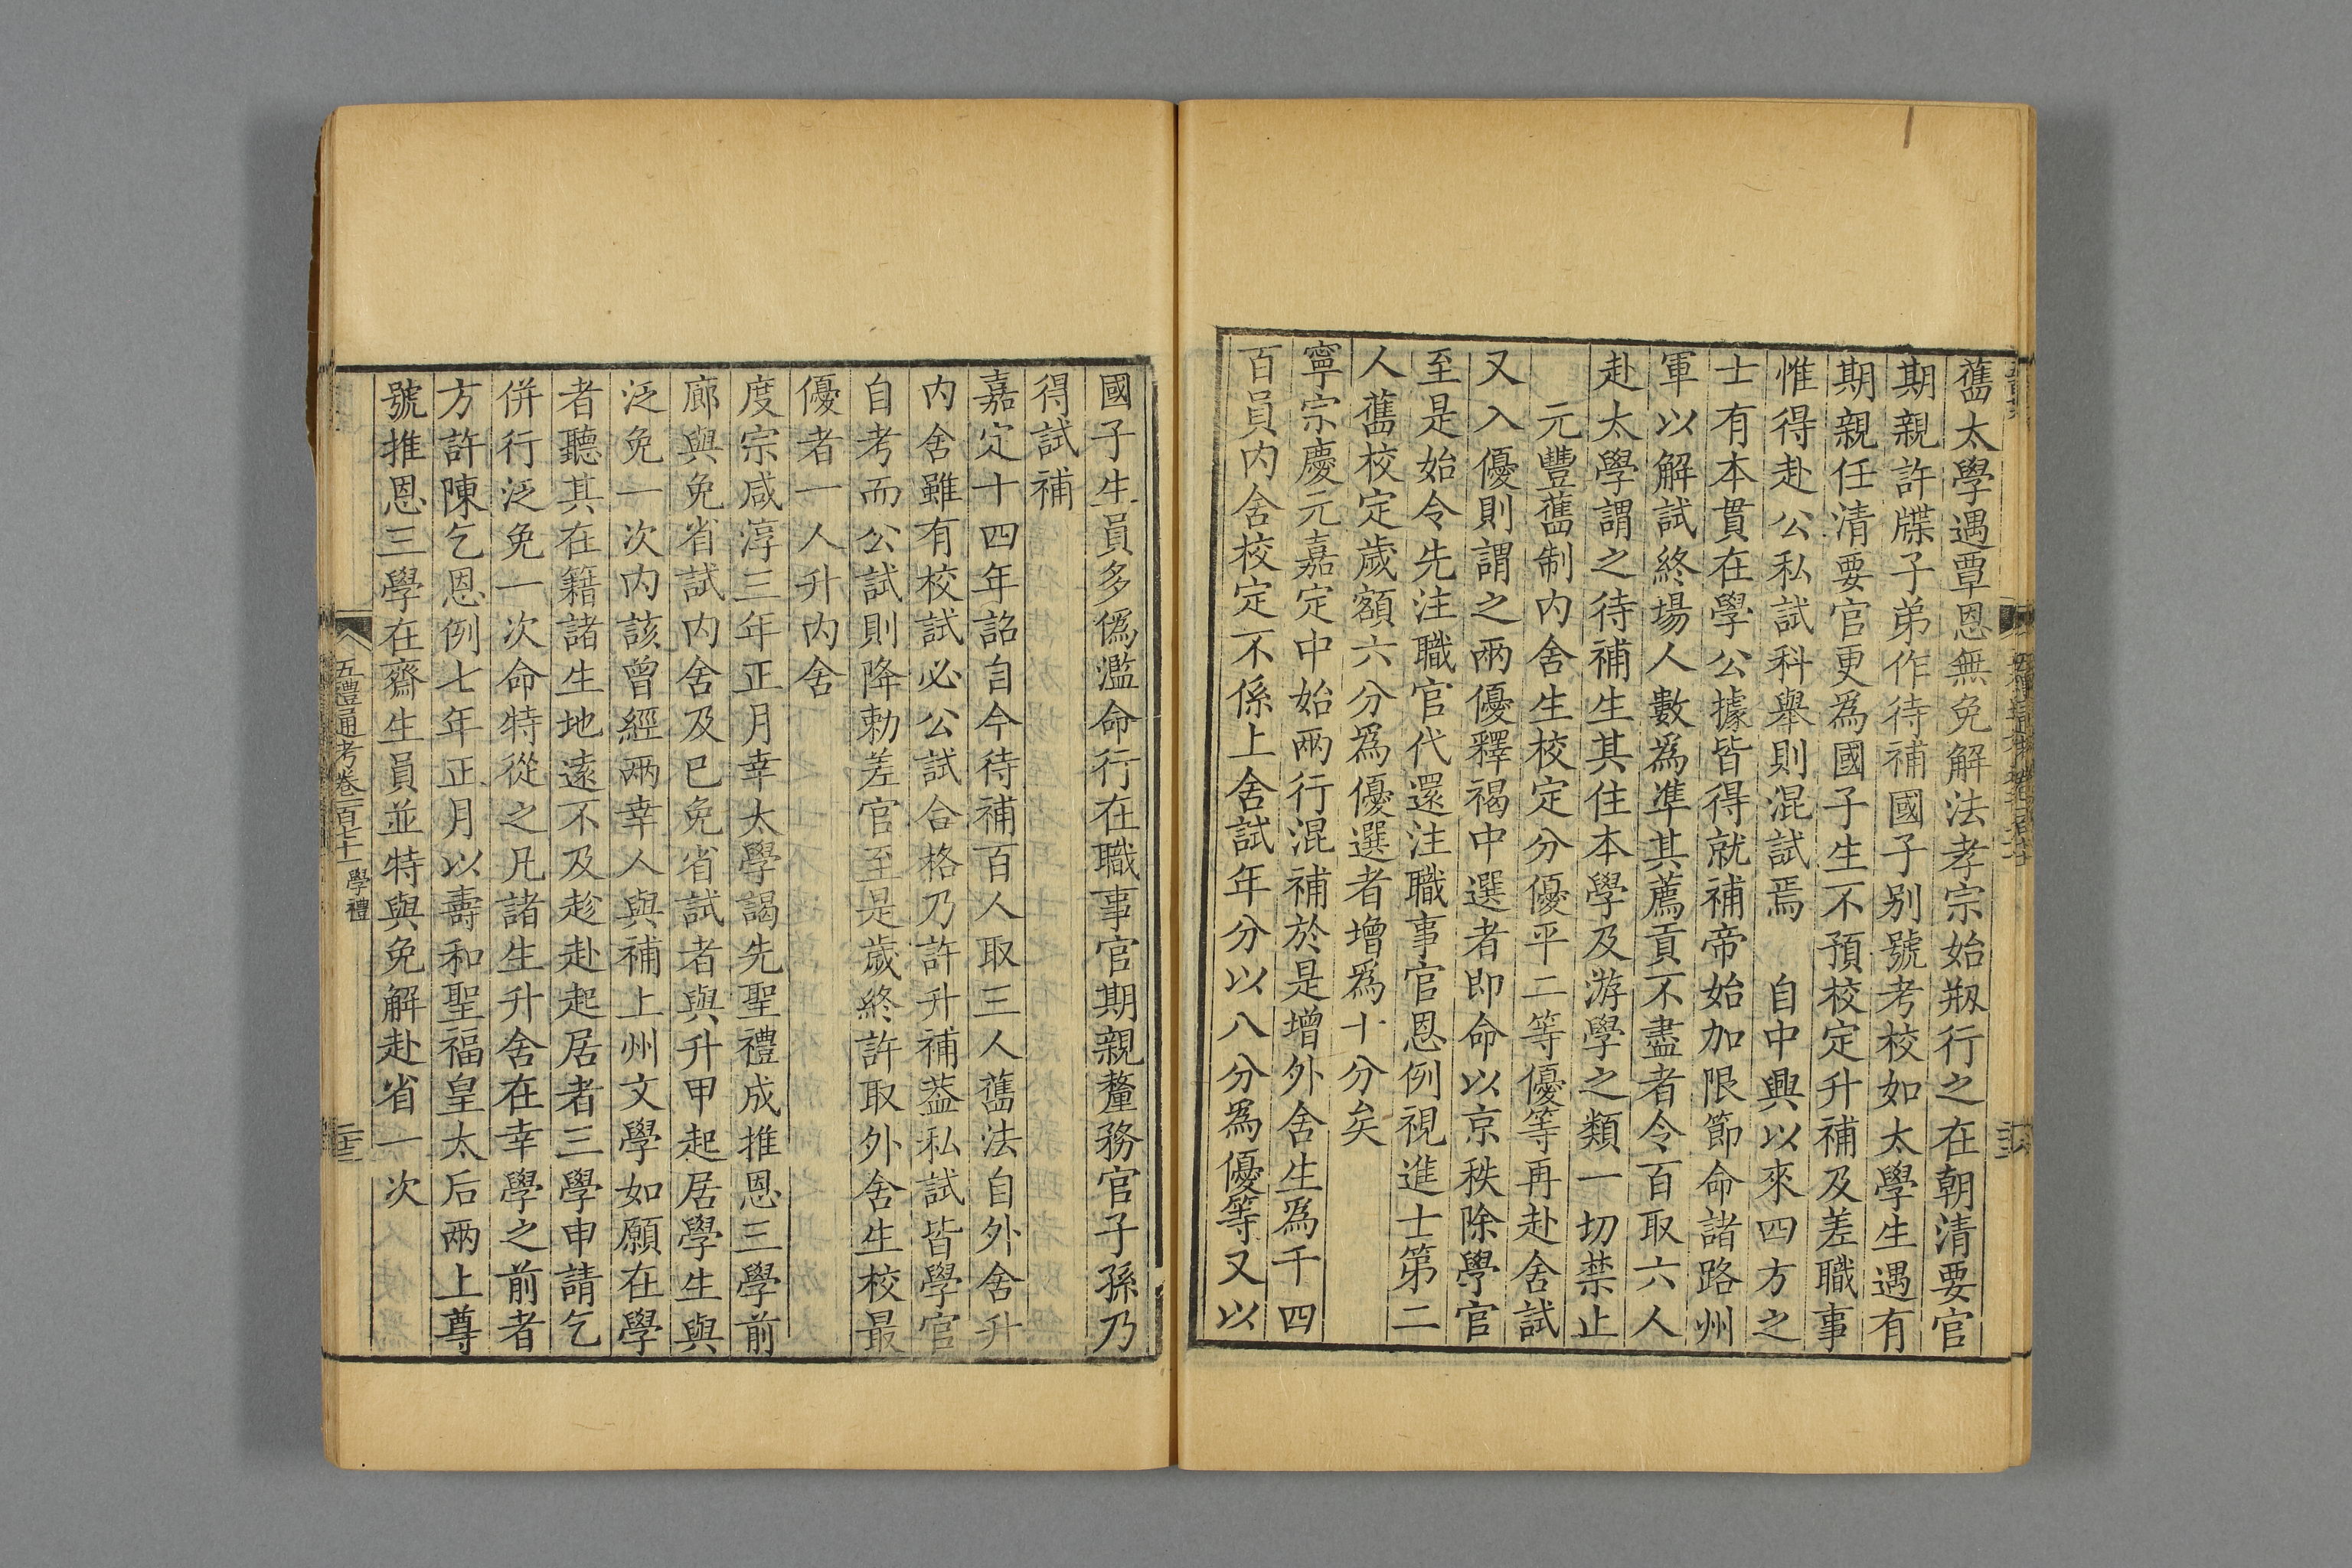 舊太學遇覃恩無免解法孝宗始剏行之在朝清要官
期親許牒子弟作待補國子別號考校如太學生遇有
期親任清要官更爲國子生不預校定升補及差職事
惟得赴公私試科舉則混試焉　自中興以來四方之
士有本貫在學公據皆得就補帝始加限節命諸路州
軍以解試終場人數爲準其薦貢不盡者令百取六人
赴太學謂之待補生其住本學及游學之類一切禁止
元豐舊制内舍生校定分優平二等優等再赴舍試
又入優則謂之兩優釋褐中選者即命以京秩除學官
至是始令先注職官代還注職事官恩例視進士第二
人舊校定歲額六分爲優選者增爲十分矣
寧宗慶元嘉定中始兩行混補於是增外舍生爲千四
百員内舍校定不係上舍試年分以八分爲優等又以
國子生員多僞濫命行在職事官期親釐務官子孫乃
得試補
嘉定十四年詔自今待補百人取三人舊法自外舍升
内舍雖有校試必公試合格乃許升補葢私試皆學官
自考而公試則降勅差官至是歲終許取外舍生校最
優者一人升内舍
度宗咸淳三年正月幸太學謁先聖禮成推恩三學前
廊與免省試内舍及已免省試者與升甲起居學生與
泛免一次内該曾經兩幸人與補上州文學如願在學
者聽其在籍諸生地遠不及趁赴起居者三學申請乞
併行泛免一次命特從之凡諸生升舍在幸學之前者
方許陳乞恩例七年正月以壽和聖福皇太后兩上尊
號推恩三學在齋生員並特與免解赴省一次
五禮通考卷一百七十一　學禮